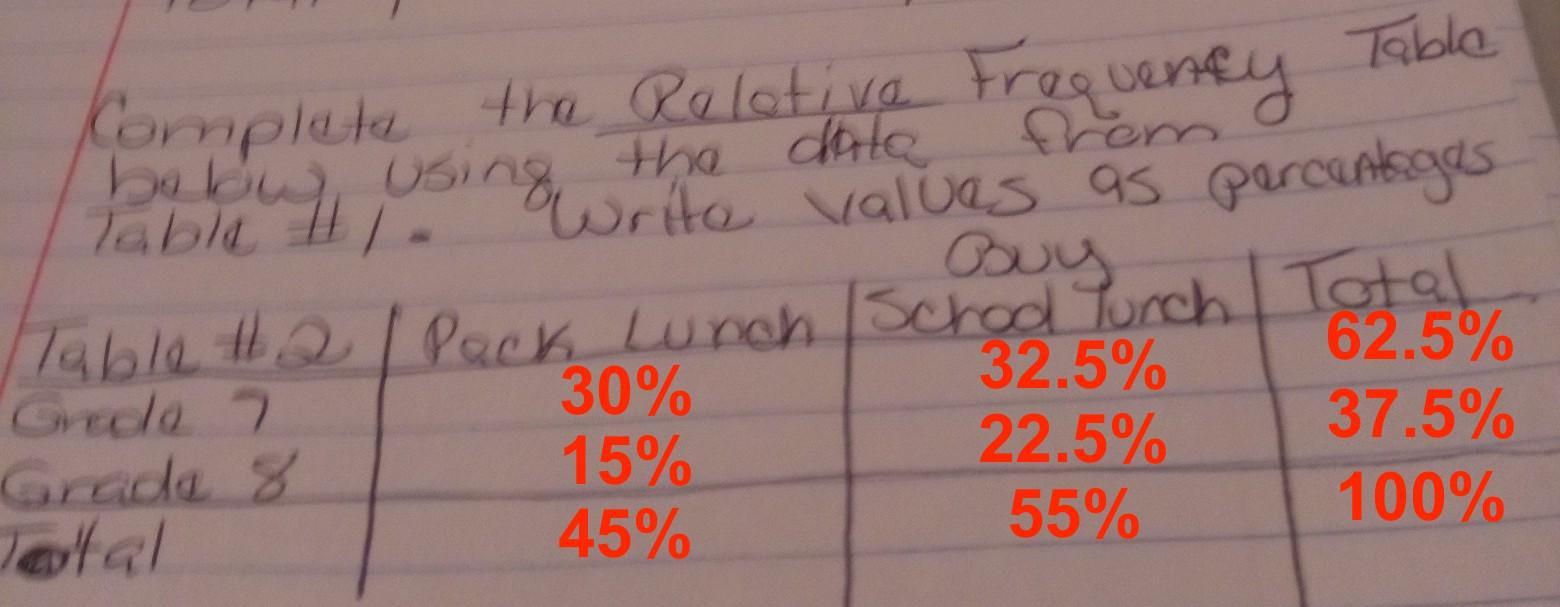 Complete the Relative Frequency Table
below, using the data from
Table #1. Write values as percentages
Table #2 Pack Lunch Buy School Lunch Total
Grade 7 30% 32.5% 62.5%
Grade 8 15% 22.5% 37.5%
Total 45% 55% 100%